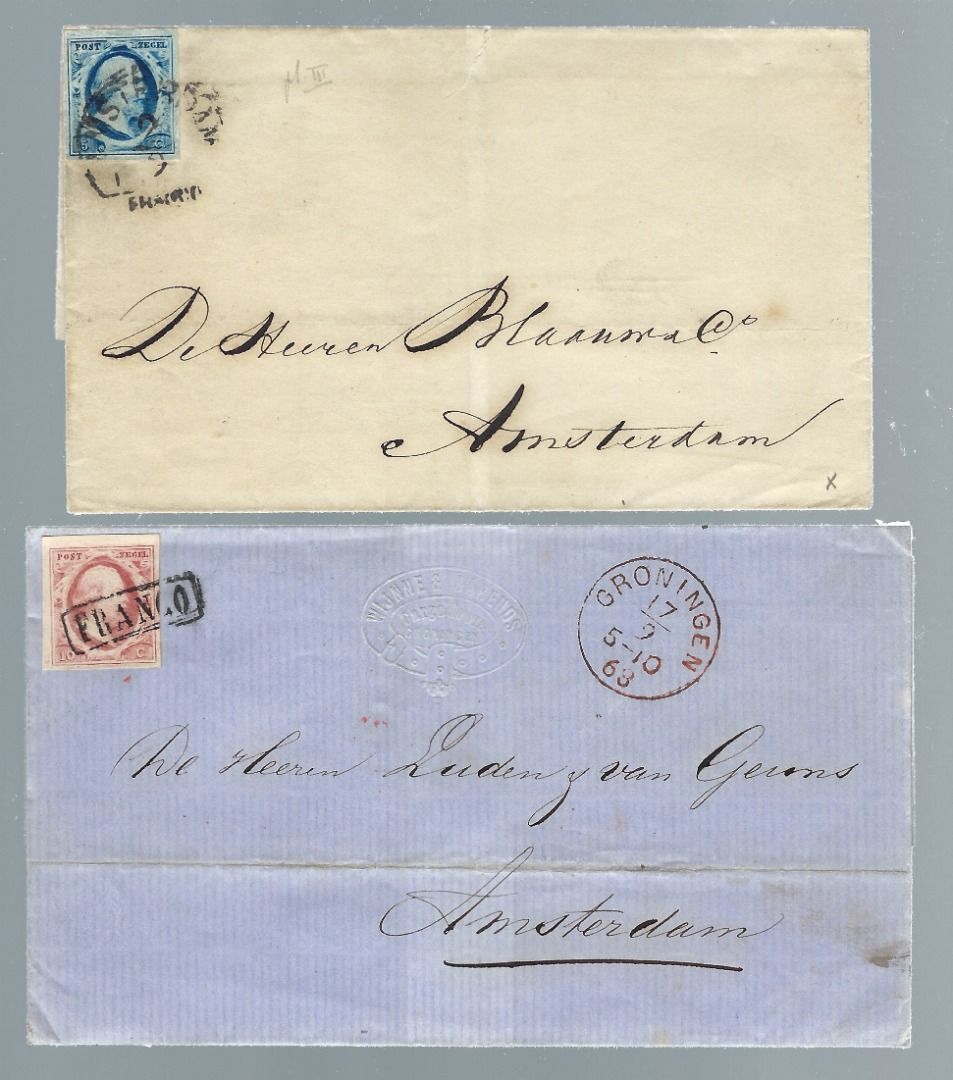 POST ZEGEL
5 C.
pl. III
FRANCO
De Heeren Blaauw & Co
Amsterdam
x
POST ZEGEL
10 C
FRANCO
WIJNNE &
GRONINGEN
17
9
5-10
63
De Heeren Luden & van Geuns
Amsterdam